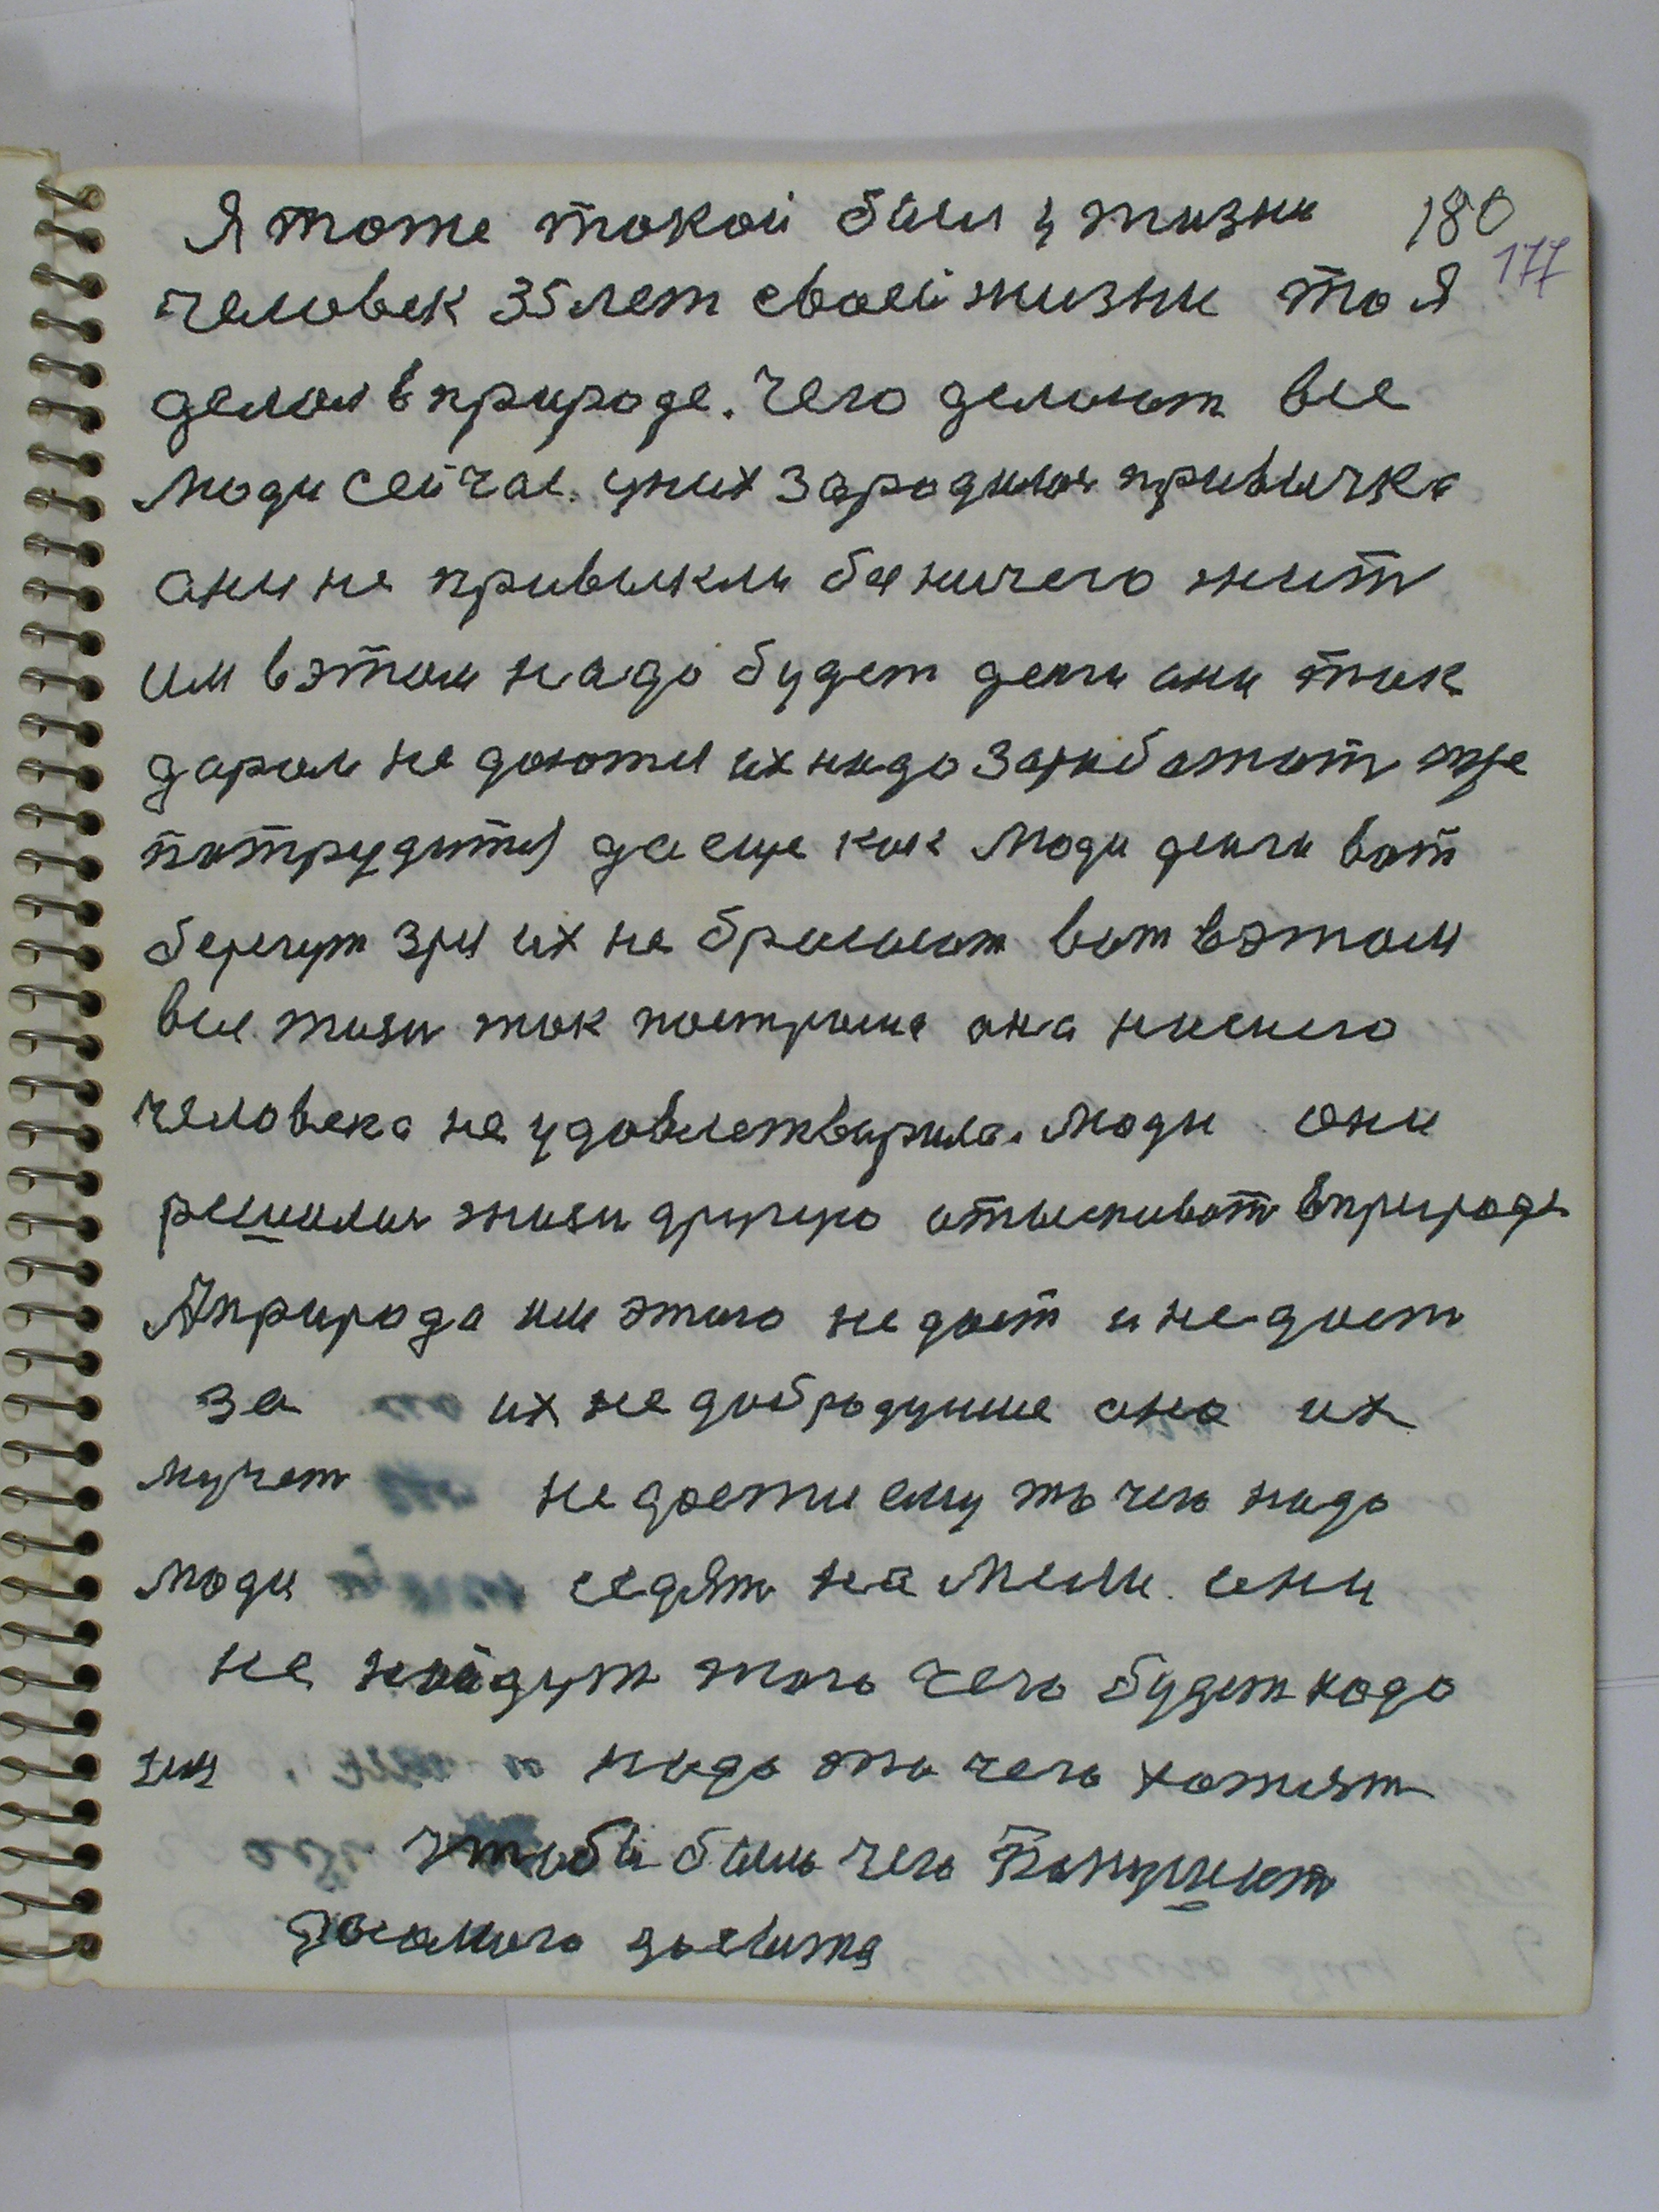 Я тоже токой был у жизни 180
177
человек 35 лет своей жизни то Я
делал в природе. Чего делают все
люди сейчас. у них зародилась привычка
они не привыкли бе ничего жит
им в этом надо будет денги они так
даром не даются их надо зарабатыт
потрудится да еще как люди денги вот
берегут зря их не бросают вот в этом
все жизн так построина она нашего
человека не удовлетварила. люди они
решилис жизн другую отыскиват в природе
А природа им этого не дает и не даст
за их не добрадушие она их
мучет не дается ему то чего надо
люди седят на мели. они
не найдут того чего будет надо
им надо то чего хотят
чтобы было чего
самого